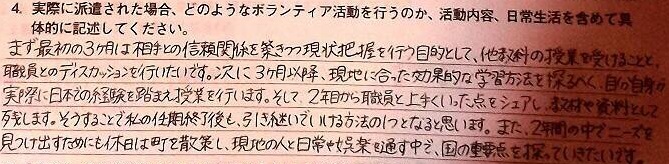 4. 実際に派遣された場合、どのようなボランティア活動を行うのか、活動内容、日常生活を含めて具
体的に記述してください。
まず最初の3ヶ月は相手との信頼関係を築きつつ現状把握を行う目的として、他教科の授業を受けることと、
職員とのディスカッションを行いたいです。次に3ヶ月以降、現地に合った効果的な学習方法を探るべく、自分自身が
実際に日本での経験を踏まえ授業を行います。そして、2年目から職員と上手くいった点をシェアし、教材や資料として
残します。そうすることで私の任期終了後も、引き継いでいける方法の1つとなると思います。また、2年間の中でニーズを
見つけ出すためにも休日は町を散策し、現地の人と日常や娯楽を通す中で、国の重要点を探っていきたいです。